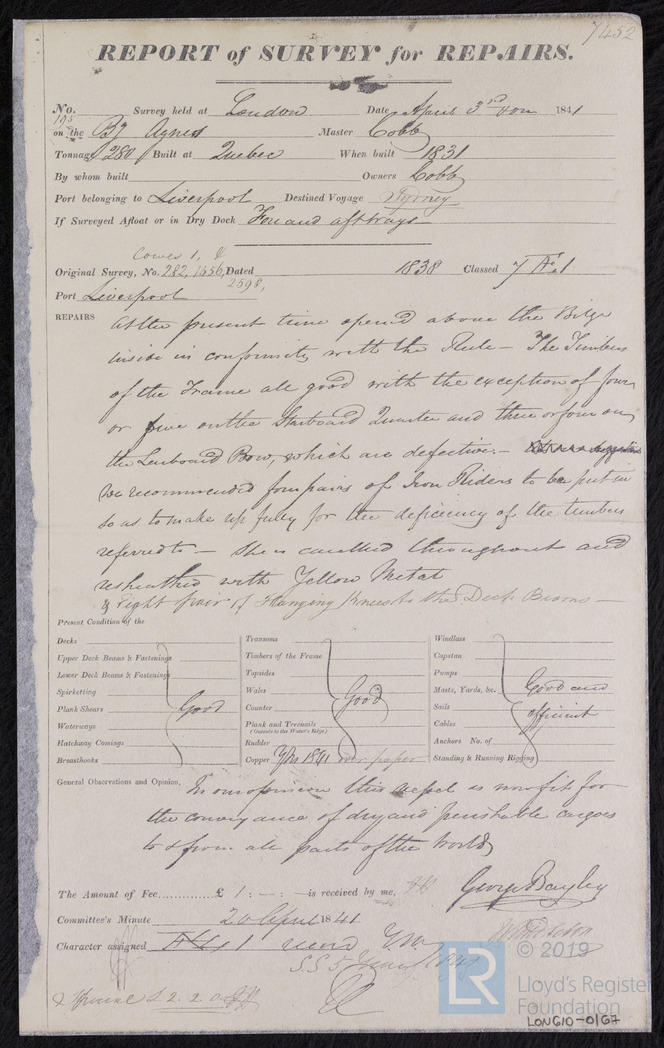 7452
REPORT of SURVEY for REPAIRS.
No. 195 Survey held at London Date April 3rd 1841
on the Bg Agnes Master Cobb
Tonnage 280 Built at Quebec When built 1831
By whom built Owners Cobb
Port belonging to Liverpool Destined Voyage Sydney
If Surveyed Afloat or in Dry Dock For and afterways
Cowes 1, &
Original Survey, No. 282, 1556, Dated 1838 Classed 7 Æ 1
2598,
Port Liverpool
REPAIRS At the present time opened above the Bilge
inside in conformity with the Rule – The Timbers
of the Frame all good with the exception of four
or five on the Starboard Quarter and three or four on
the Larboard Bow, which are defective. –
we recommended four pairs of Iron Riders to be put in
so as to make up fully for the deficiency of the timbers
referred to – She is caulked throughout and
resheathed with Yellow Metal
& Eight pair of Hanging Knees to the Deck Beams –
Present Condition of the
Decks
Upper Deck Beams & Fastenings
Lower Deck Beams & Fastenings
Spirketting
Plank Shears Good
Waterways
Hatchway Comings
Breasthooks
Transoms
Timbers of the Frame
Topsides
Wales Good
Counter
Plank and Treenails
(Outside to the Water's Edge)
Rudder
Copper YM 1841 over paper
Windlass
Capstan
Pumps
Masts, Yards, &c. Good and
Sails efficient
Cables
Anchors No. of
Standing & Running Rigging
General Observations and Opinion, In our opinion this vessel is now fit for
the conveyance of dry and perishable cargoes
to & from all parts of the World
The Amount of Fee............ £ 1 : – : – is received by me,
George Bayley
Committee's Minute 20 April 1841
Character assigned Æ 1
S.S 5
2. 2. 0
LR © 2019
Lloyd's Register
Foundation
LON610-0167